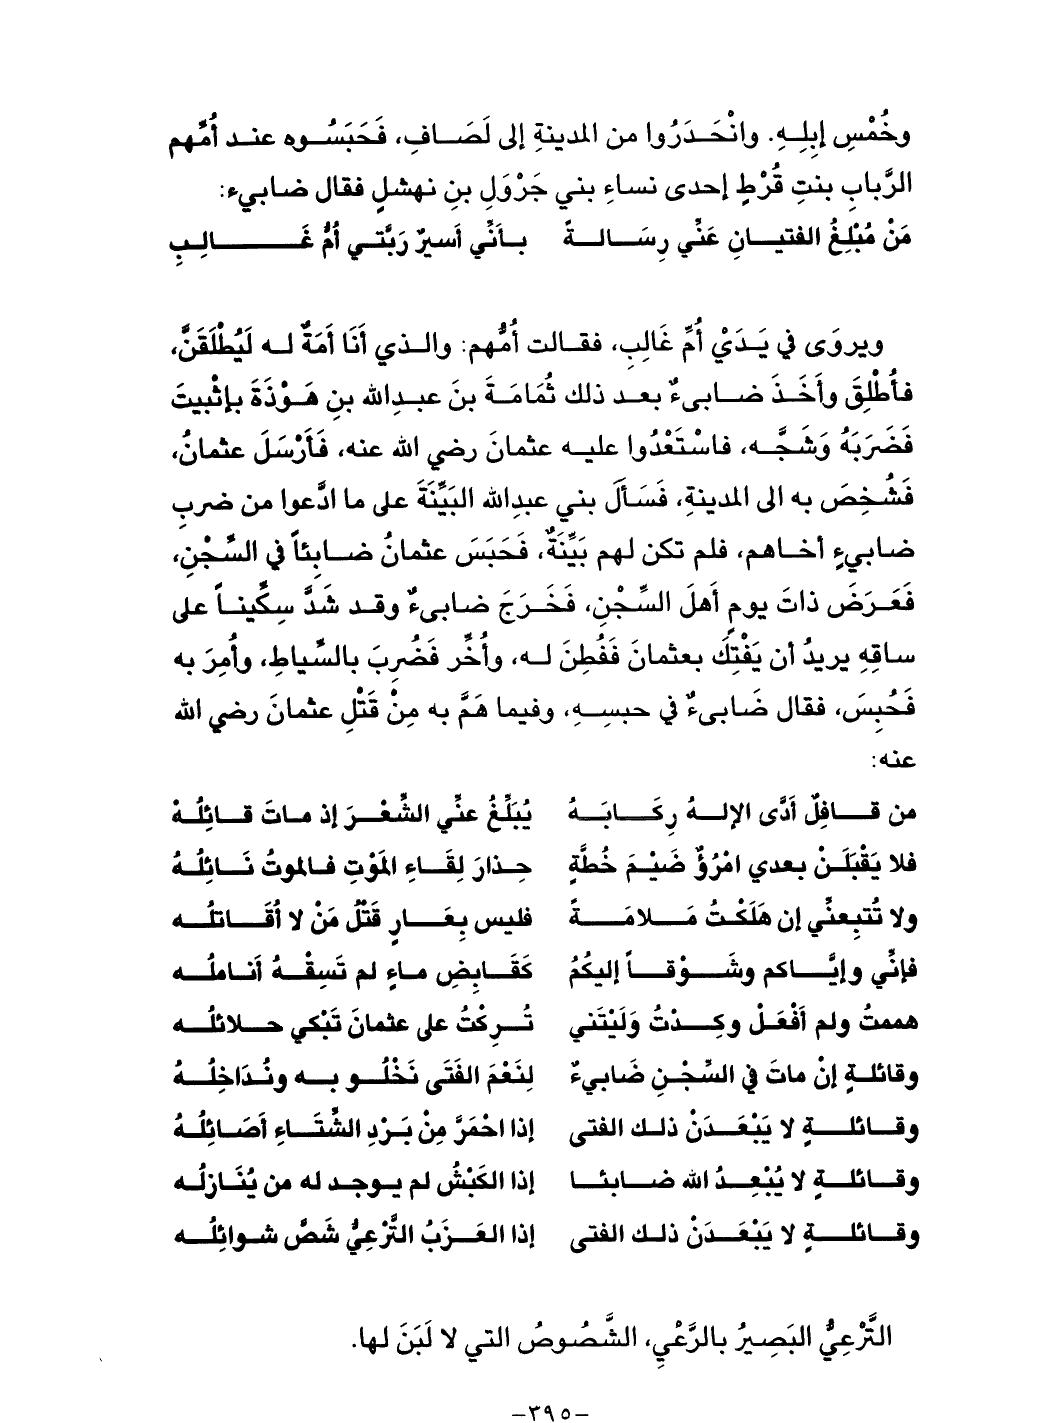 وخُمْسِ إبِلِهِ. وانْحَدَرُوا من المدينةِ إلى لَصَافِ، فَحَبَسُوه عند أُمِّهم
الرَّبابِ بنتِ قُرْطٍ إحدى نساءِ بني جَرْوَلِ بنِ نهشلٍ فقال ضابيء:
مَنْ مُبْلِغُ الفتيانِ عَنِّي رِسَالةً بأنِّي أسيرُ رَبَّتي أمُّ غَالِبِ
ويروَى في يَدَيْ أُمِّ غَالِبِ، فقالت أُمُّهم: والذي أَنَا أَمَةٌ له لَيُطْلَقَنَّ،
فأُطْلِقَ وأَخَذَ ضابىءٌ بعد ذلك ثُمَامَةَ بنَ عبدِالله بنِ هَوْذَةَ بإثْبيتَ
فَضَرَبَهُ وَشَجَّه، فاسْتَعْدُوا عليه عثمانَ رضي الله عنه، فَأَرْسَلَ عثمانُ،
فَشُخِصَ به الى المدينةِ، فَسَأَلَ بني عبدِالله البَيِّنَةَ على ما ادَّعوا من ضربِ
ضابيءٍ أخاهم، فلم تكن لهم بَيِّنَةٌ، فَحَبَسَ عثمانُ ضابِئاً في السِّجْنِ،
فَعَرَضَ ذاتَ يومٍ أهلَ السِّجْنِ، فَخَرَجَ ضابىءٌ وقد شَدَّ سِكِّيناً على
ساقِهِ يريدُ أن يَفْتِكَ بعثمانَ فَفُطِنَ له، وأُخِّر فَضُرِبَ بالسِّياطِ، وأُمِرَ به
فَحُبِسَ، فقال ضَابىءٌ في حبسِهِ، وفيما هَمَّ به مِنْ قَتْلِ عثمانَ رضي الله
عنه:
من قافِلٌ أدَّى الإلهُ رِكَابَهُ يُبَلِّغُ عنِّي الشِّعْرَ إذ ماتَ قائِلُهْ
فلا يَقْبَلَنْ بعدي امْرُؤٌ ضَيْمَ خُطَّةٍ حِذارَ لِقَاءِ المَوْتِ فالموتُ نَائِلُهْ
ولا تُتبِعنِّي إن هَلَكْتُ مَلامَةً فليس بِعَارٍ قَتْلُ مَنْ لا أُقَاتلُه
فإنِّي وإيَّاكم وشَوْقاً إليكُمُ كَقَابِضِ ماءٍ لم تَسِقْهُ أناملُه
هممتُ ولم أَفْعَلْ وكِدْتُ وَلَيْتَني تُرِكْتُ على عثمانَ تَبْكي حلائلُه
وقائلةٍ إنْ ماتَ في السِّجْنِ ضَابيءٌ لِنَعْمَ الفَتَى نَخْلُو به ونُدَاخِلُهُ
وقائلةٍ لا يَبْعَدَنْ ذلك الفتى إذا احْمَرَّ مِنْ بَرْدِ الشِّتَاءِ أصَائِلُهُ
وقائلةٍ لا يُبْعِدُ الله ضابئا إذا الكَبْشُ لم يوجد له من يُنَازلُه
وقائلةٍ لا يَبْعَدَنْ ذلك الفتى إذا العَزَبُ التِّرْعِيُّ شَصَّ شوائِلُه
التَّرْعِيُّ البَصِيرُ بالرَّعْيِ، الشَّصُوصُ التي لا لَبَنَ لها.
–٣٩٥–